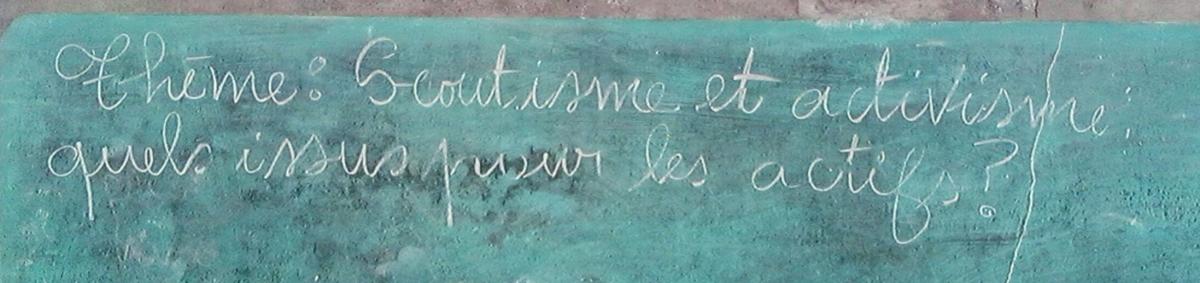 Thème: Scoutisme et activisme:
quels issus pour les actifs?